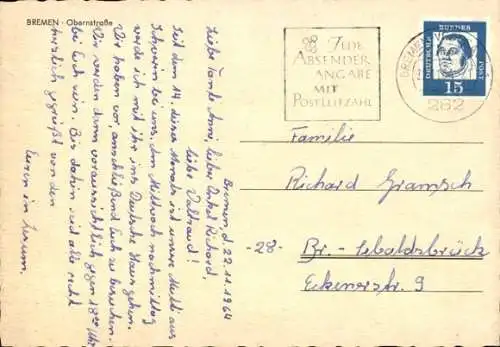 BREMEN · Obernstraße
Bremen, d. 22.11.1964
Liebe Tante Anni, lieber Onkel Richard,
liebe Waltraud!
Seit dem 14. dieses Monats ist unser Mutti aus
Schwerin bei uns. Am Mittwoch nachmittag
werde ich mit ihr ins Deutsche Haus gehen.
Wir haben vor, anschließend Euch zu besuchen.
Wir werden dann voraussichtlich gegen 18 00 Uhr
bei Euch sein. Bis dahin seid alle recht
herzlich gegrüßt von den
Euren in Lesum.
JEDE
ABSENDER
ANGABE
MIT
POSTLEITZAHL
BREMEN
282
DEUTSCHE
BUNDES
POST
15
Familie
Richard Gramsch
-28-
Br.-Sebaldsbrück
Eckenerstr. 9